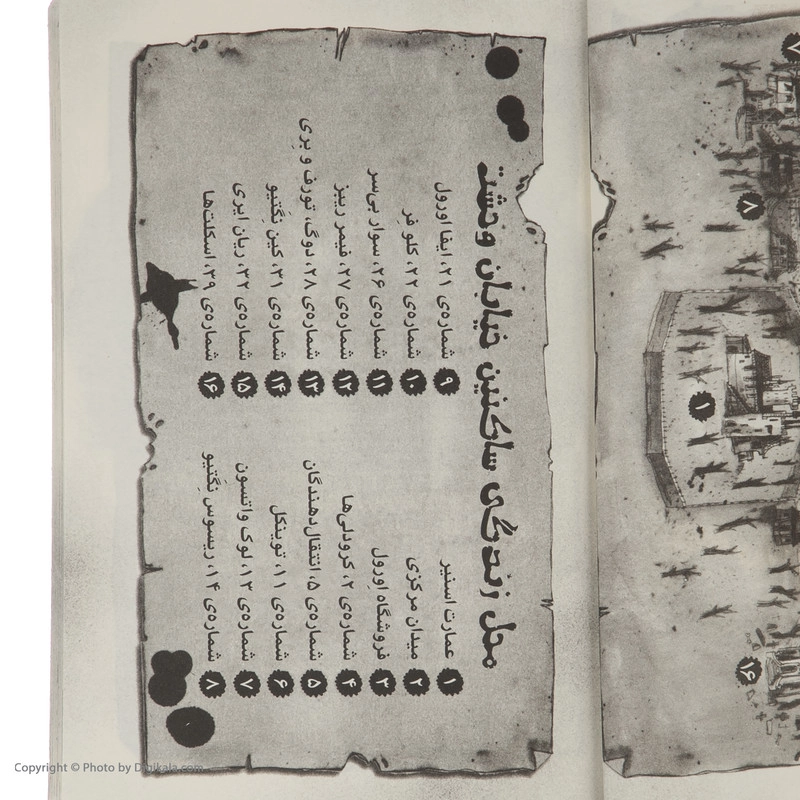 محل زندگی ساکنین خیابان وحشت
۱ عمارت اسنیر
۲ میدان مرکزی
۳ فروشگاه اورول
۴ شماره‌ی ۲، کرودلی‌ها
۵ شماره‌ی ۵، انتقال‌دهندگان
۶ شماره‌ی ۱۱، توینکل
۷ شماره‌ی ۱۳، لوک واتسون
۸ شماره‌ی ۱۴، ریسوس نِگتیو
۹ شماره‌ی ۲۱، ایفا اورول
۱۰ شماره‌ی ۲۲، کلو فر
۱۱ شماره‌ی ۲۶، سوار بی‌سر
۱۲ شماره‌ی ۲۷، فیمر ریبز
۱۳ شماره‌ی ۲۸، دوگ، تورف و بری
۱۴ شماره‌ی ۳۱، کین نِگتیو
۱۵ شماره‌ی ۳۲، ریان ایری
۱۶ شماره‌ی ۳۹، اسکلت‌ها
۷
۸
۱
۱۶
Copyright © Photo by Digikala.com